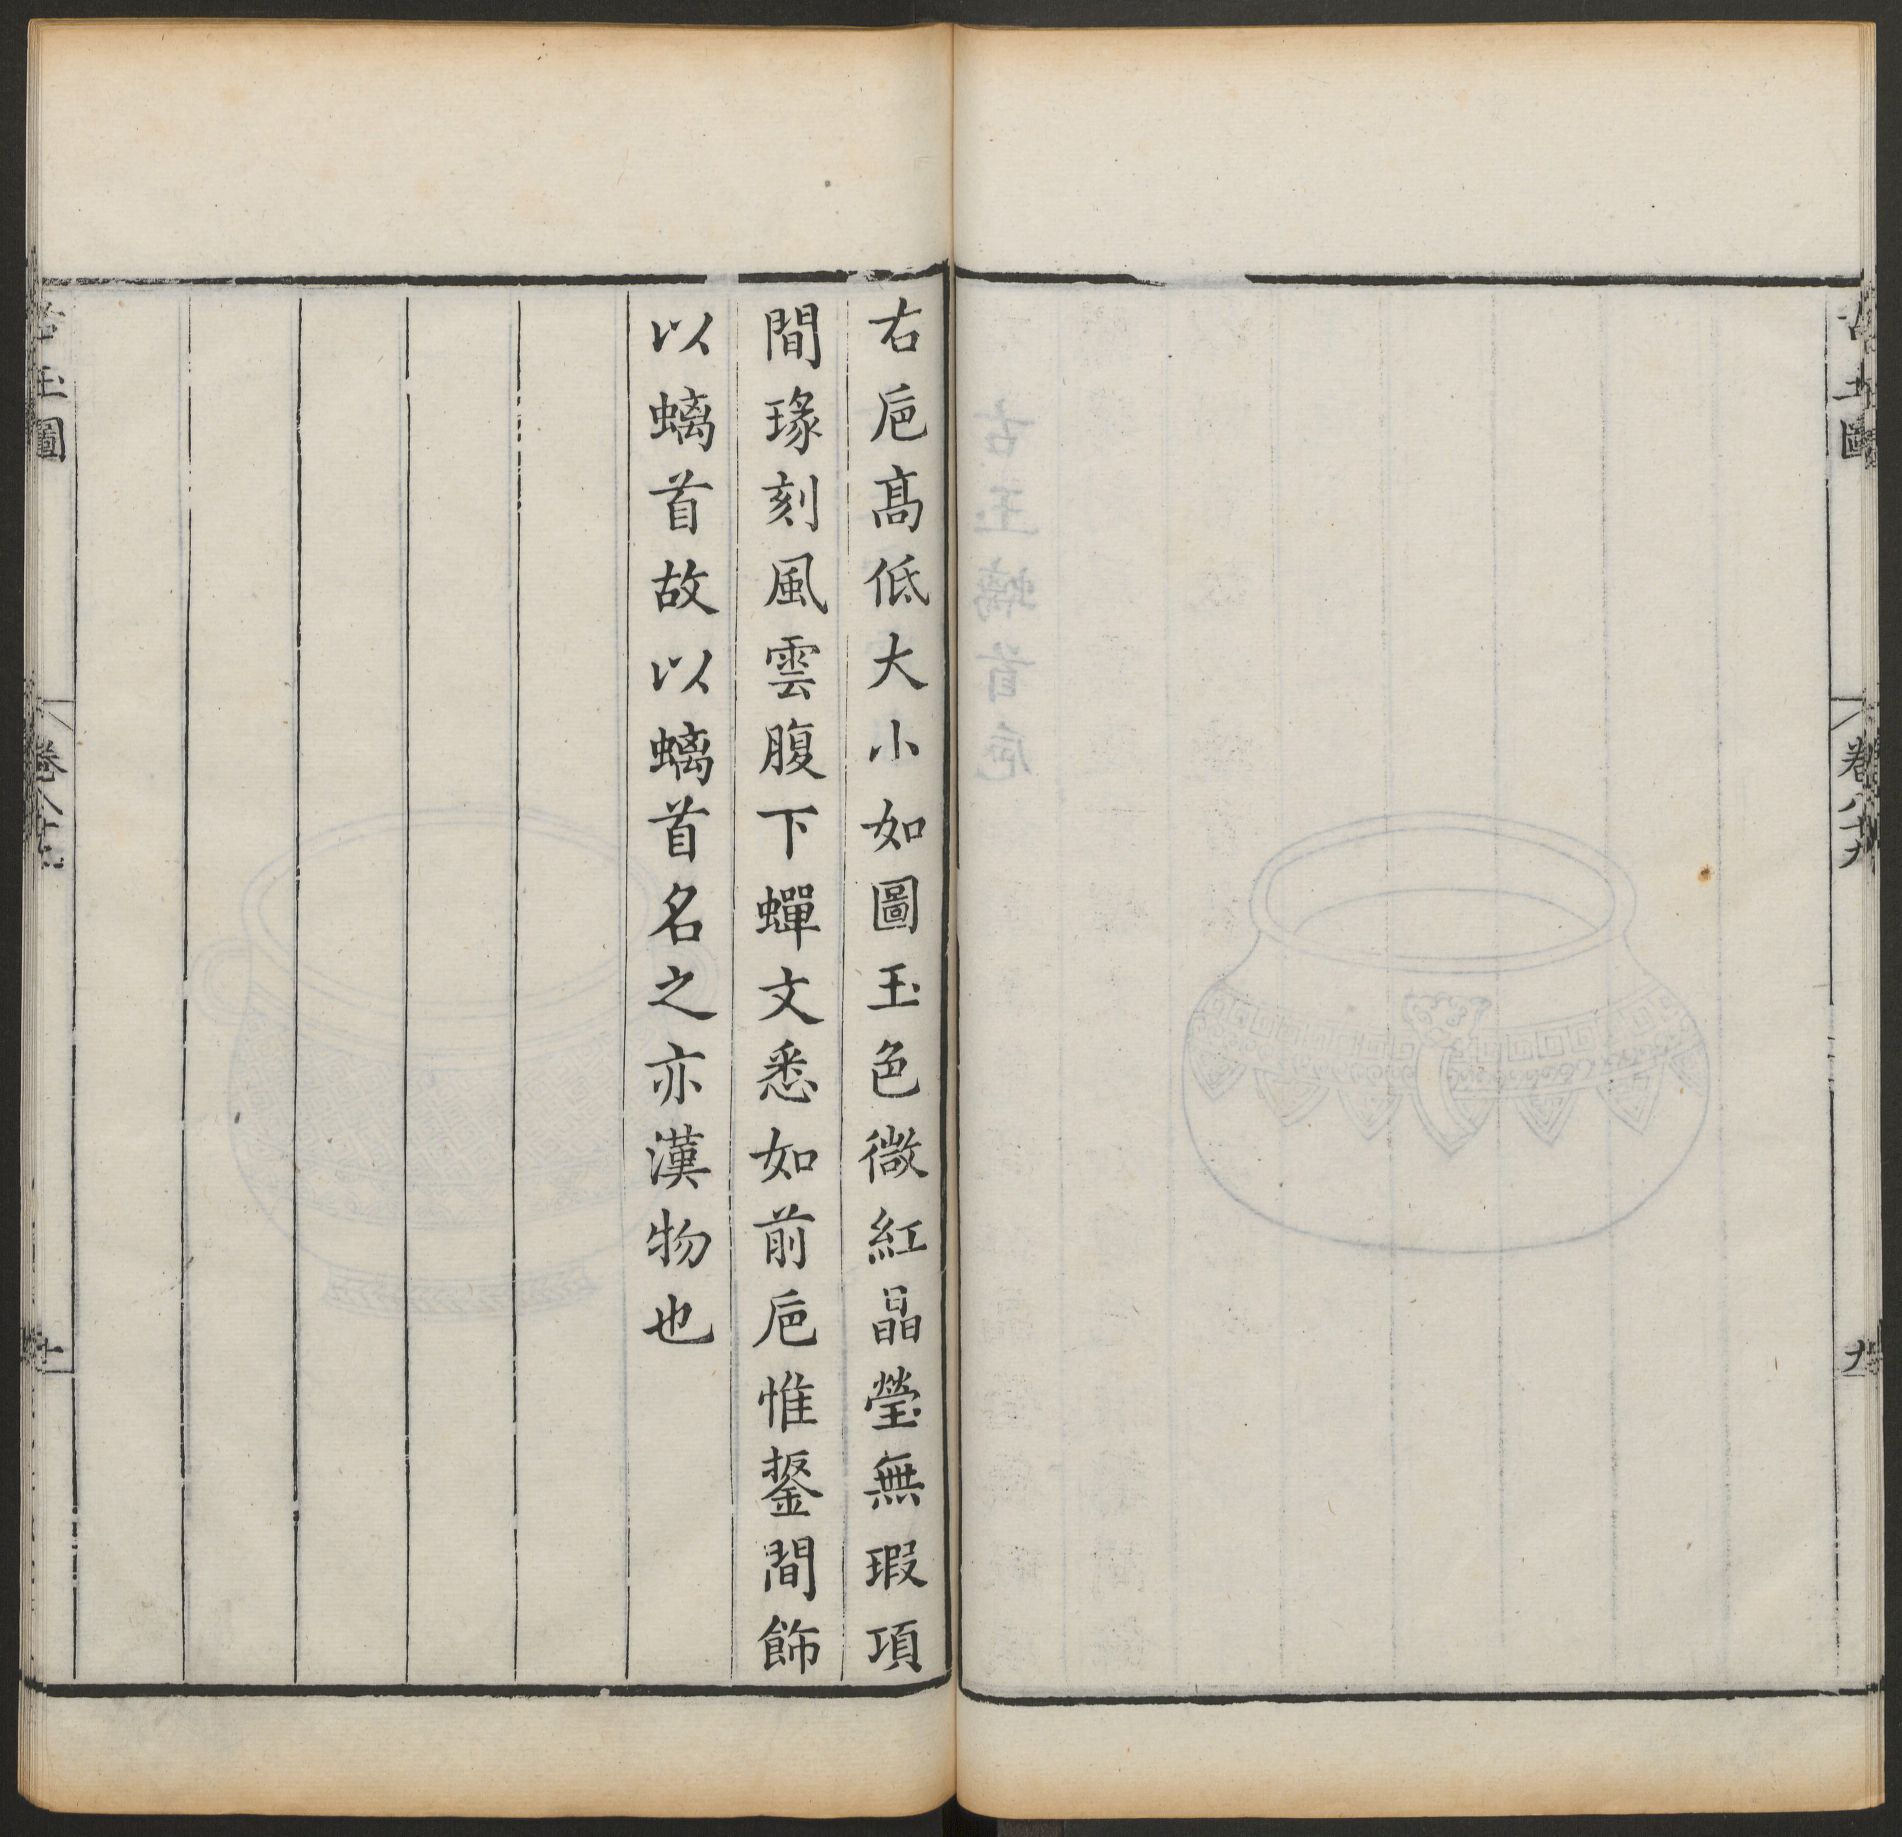 古玉圖
卷八十九
九
右巵髙低大小如圖玉色微紅晶瑩無瑕項
間瑑刻風雲腹下蟬文悉如前巵惟鋬間飾
以螭首故以螭首名之亦漢物也
古玉圖
卷八十九
十